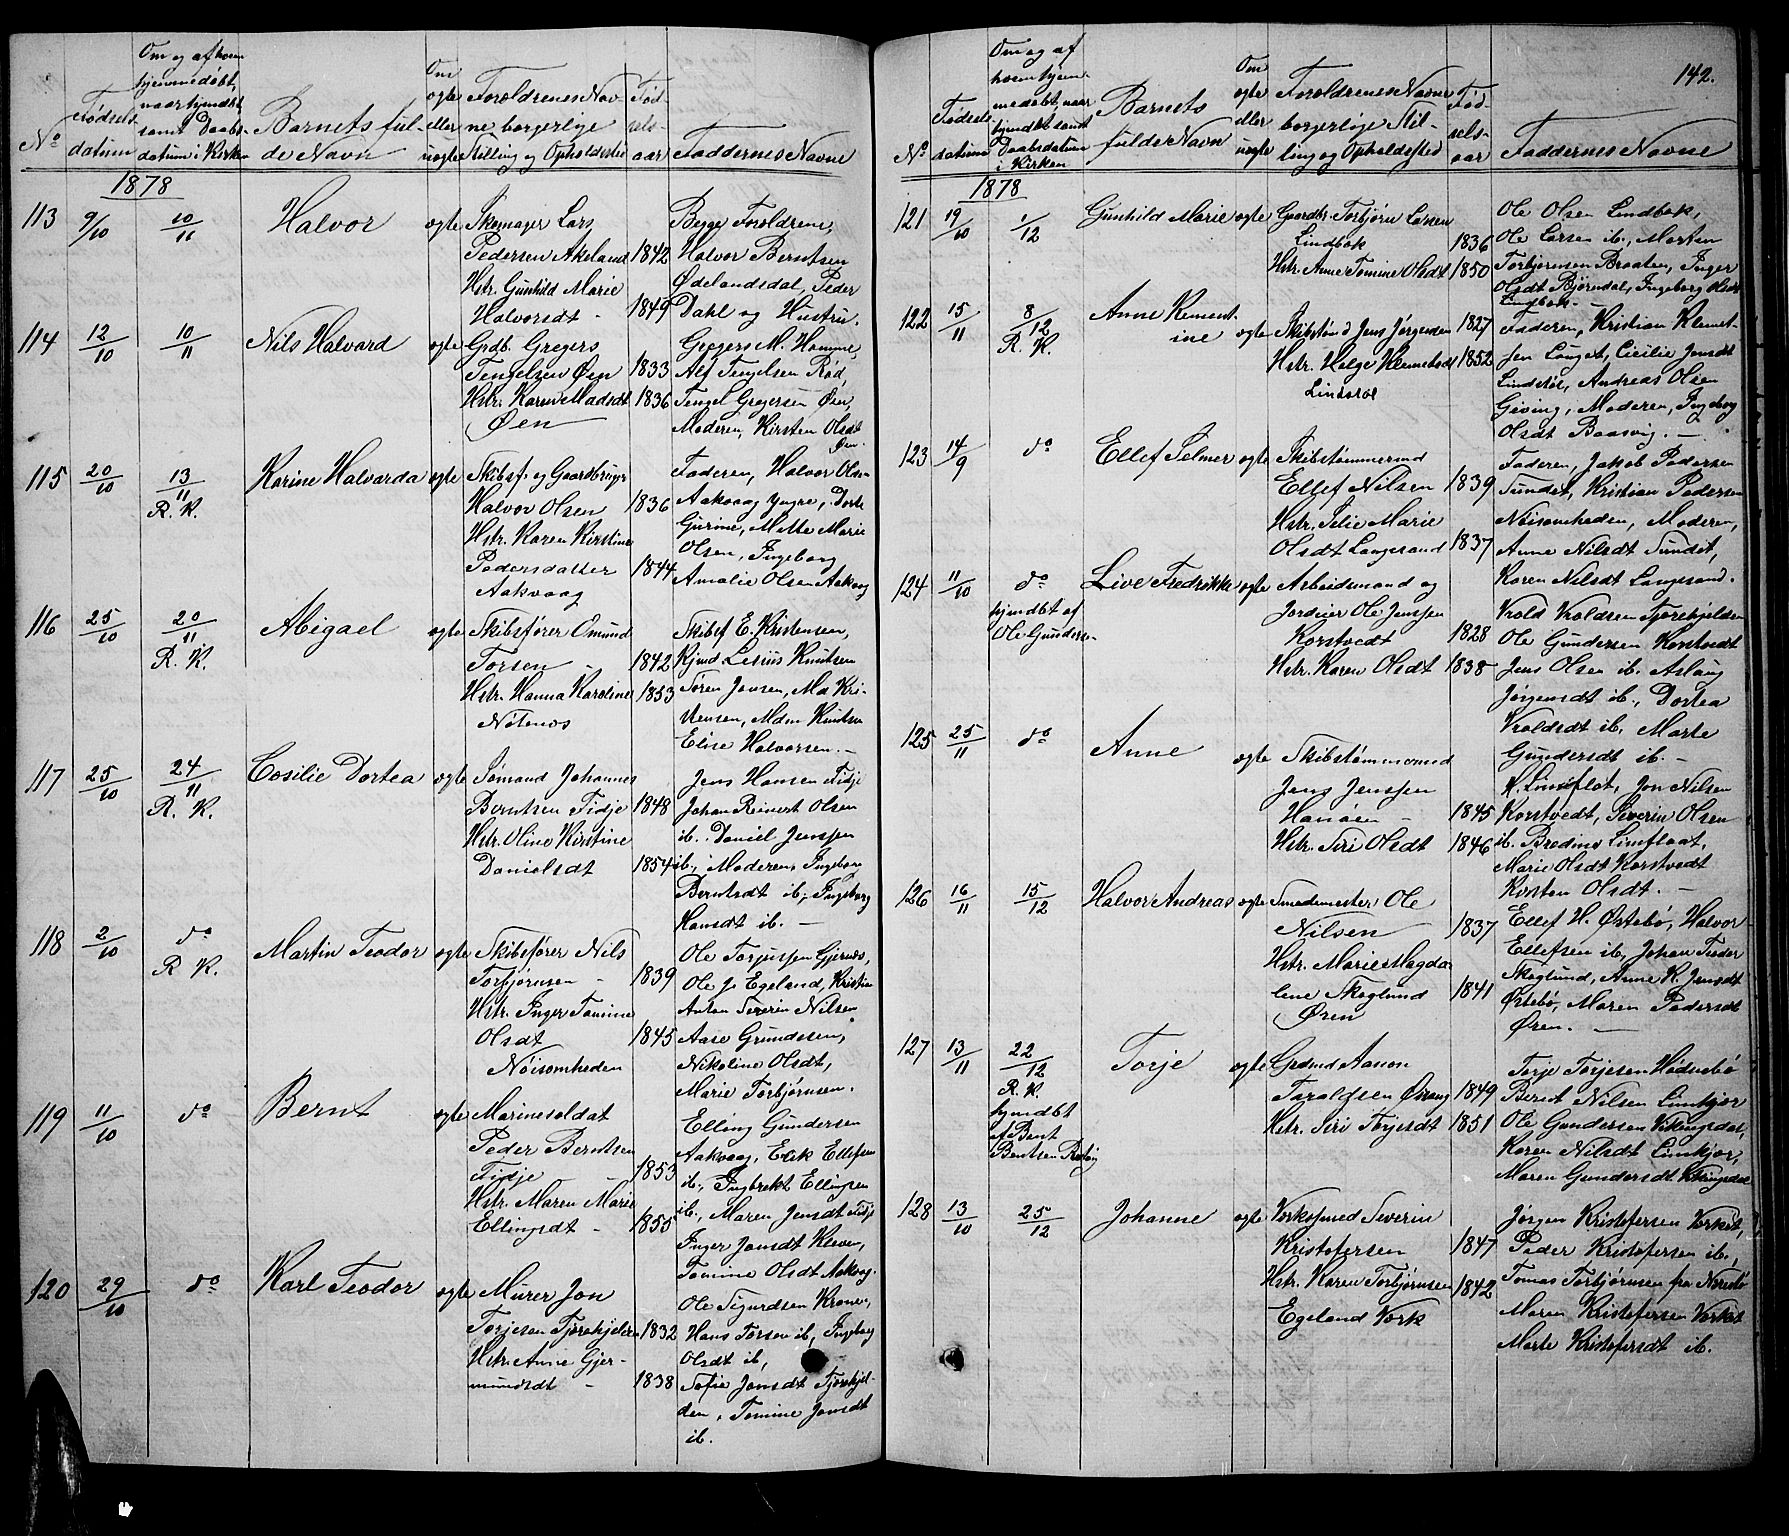 No
Fødsels
datum
Om og af hvem
hjemmedøbt,
naar hjmdbt
samt Daabs-
datum i Kirken
Barnets ful-
de Navn
Om
ægte
eller
uægte
Forældrenes Nav-
ne borgerlige
Stilling og Opholdsted
Fød-
sels-
aar
Faddernes Navne
1878
113 9/10 10/11 Halvor ægte
Skomager Lars
Pedersen Akeland 1842
Hstr. Gunhild Marie
Halvorsdt - 1849
Begge Forældrene,
Halvor Berntsen
Ødelandsdal, Peder
Dahl og Hustru.
114 12/10 10/11 Nils Halvard ægte
Grdb. Gregers
Tengelsen Øen 1833
Hstr. Karen Madsdt 1836
Øen
Gregers M. Homme,
Alf Tengelsen Rød,
Tengel Gregersen Øen,
Moderen, Kirsten Olsdt
Øen.
115 20/10 13/11 R. K. Karine Halvarda ægte
Skibsf. og Gaardbruger
Halvor Olsen 1836
Hstr. Karen Kirstine
Pedersdatter 1844
Aakvaag
Faderen, Halvor Olsen
Aakvaag yngre, Dorte
Gurine, Mette Marie
Olsen, Ingeborg
Amalie Olsen Aakvaag
116 25/10 20/11 R. K. Abigael ægte
Skibsfører Omund
Torsen - 1842
Hstr. Hanna Karoline 1853
Nøtenes
Skibsf E. Kristensen,
Kjmd Lesius Knutsen
Søren Jensen, Md Kri-
stensen, Mdm Knutsen
Elise Halvorsen. -
117 25/10 24/11 R. K. Cecilie Dortea ægte
Sømand Johannes
Berntsen Fidje 1848
Hstr. Oline Kirstine
Danielsdt 1854
Jens Hansen Fidje
Johan Reinert Olsen
ib. Daniel Jenssen
ib., Moderen, Ingeborg
Berntsdt ib., Ingeborg
Hansdt ib. -
118 2/10 do R. K. Martin Teodor ægte
Skibsfører Nils
Torbjørnsen - 1839
Hstr. Inger Tomine
Olsdt 1845
Nøisomheden
Ole Torjussen Gjernes,
Ole J. Egeland, Kristian
Anton Severin Nilsen
Aase Gundersen,
Nikoline Olsdt,
Marie Torbjørnsen.
119 11/10 do Bernt ægte
Marinesoldat
Peder Berntsen
Fidje - 1853
Hstr. Maren Marie
Ellingsdt - 1855
Elling Gundersen
Aakvaag, Erik Ellefsen
ib., Ingbrekt Ellingsen
ib., Maren Jensdt Fidje
Inger Jonsdt Kleven,
Tomine Olsdt Aakvag.
120 29/10 do Karl Teodor ægte
Murer Jon
Torjesen Tjørehjelen 1832
Hstr. Anne Gjer-
mundsdt - 1838
Ole Sigurdsen Krone,
Hans Torsen ib, Ingeborg
Olsdt ib,
Sofie Jonsdt Tjørehjel-
den, Tomine Jonsdt
ib.
142.
No
Fødsels
datum
Om og af
hvem hjem-
medøbt, naar
hjmdbt samt
Daabsdatum
i Kirken
Barnets
fulde Navn
Om
ægte
eller
uægte
Forældrenes Navne
borgerlige Stil-
ling og Opholdsted
Fød-
sels-
aar
Faddernes Navne
1878
121 19/10 1/12 Gunhild Marie ægte
Gaardbr. Torbjørn Larsen
Lindbæk 1836
Hstr. Anne Tomine Olsdt 1850
Ole Olsen Lindbæk,
Ole Larsen ib., Morten
Torbjørnsen Braaten, Inger
Olsdt Bjørndal, Ingeborg Olsdt
Lindbæk -
122 15/11 8/12 R. K. Anne Klement-
ine ægte
Skibstmd Jens Jørgensen 1827
Hstr. Helge Klemetsdt 1852
Lindstøl
Faderen, Kristian Klemet-
sen Langset, Cicilie Jensdt
Lindstøl, Andreas Olsen
Giving, Moderen, Ingeborg
Olsdt Baasvig. -
123 14/9 do Ellef Selmer ægte
Skibstømmermd
Ellef Nilsen 1839
Hstr. Silie Marie
Olsdt Langesand 1837
Faderen, Jakob Pedersen
Sundet, Kristian Pedersen
Nøisomheden, Moderen,
Anne Nilsdt Sundet,
Karen Nilsdt Langesand.
124 11/10 do Live Fredrikke ægte
hjmdbt af
Ole Gunderse-
Arbeidsmand og
Jordeier Ole Jenssen
Korstvedt 1828
Hstr. Karen Olsdt 1838
Vrold Vroldsen Tjørehjelden
Ole Gundersen Korstvedt
Jens Olsen ib. Aslaug
Jørgensdt ib., Dortea
Vroldsdt ib. Marte
Gundersdt ib. -
125 25/11 do Anne ægte
Skibstømmermd
Jens Jenssen
Hanøen - 1845
Hstr. Siri Olsdt 1846
K. Limfløt, Jon Nilsen
Korstvedt, Severin Olsen
ib. Bredine Limflaat,
Marie Olsdt Korstvedt
Kirsten Olsdt. -
126 16/11 15/12 Halvor Andreas ægte
Smedemester Ole
Nilsen 1837
Hstr. Marie Magda
lene Skoglund 1841
Øren
Ellef H. Østebø, Halvor
Ellefsen ib, Johan Teodor
Skoglund, Anne K. Jensdt
Østebø, Maren Pedersdt
Øren. -
127 13/11 22/12 R. K. Torje ægte
hjmdbt
af Bent
Bentsen
Grdmd Aanon
Taraldsen Østang 1849
Hstr. Siri Torjesdt 1851
Torje Torjesen Hødnebø
Bernt Nilsen Limkjær
Ole Gundersen Vikingsdal,
Karen Nilsdt Limkjær,
Maren Gundersdt Vikingsdal
128 13/10 25/12 Johanne ægte
Værksmed Severin
Kristofersen 1847
Hstr. Karen Torbjørnsen 1842
Egeland Værk
Jørgen Kristofersen Værket,
Peder Kristofersen ib.,
Tomas Torbjørnsen fra Næsebø
Maren Kristofersen Værket
Marte Kristofersdt ib.